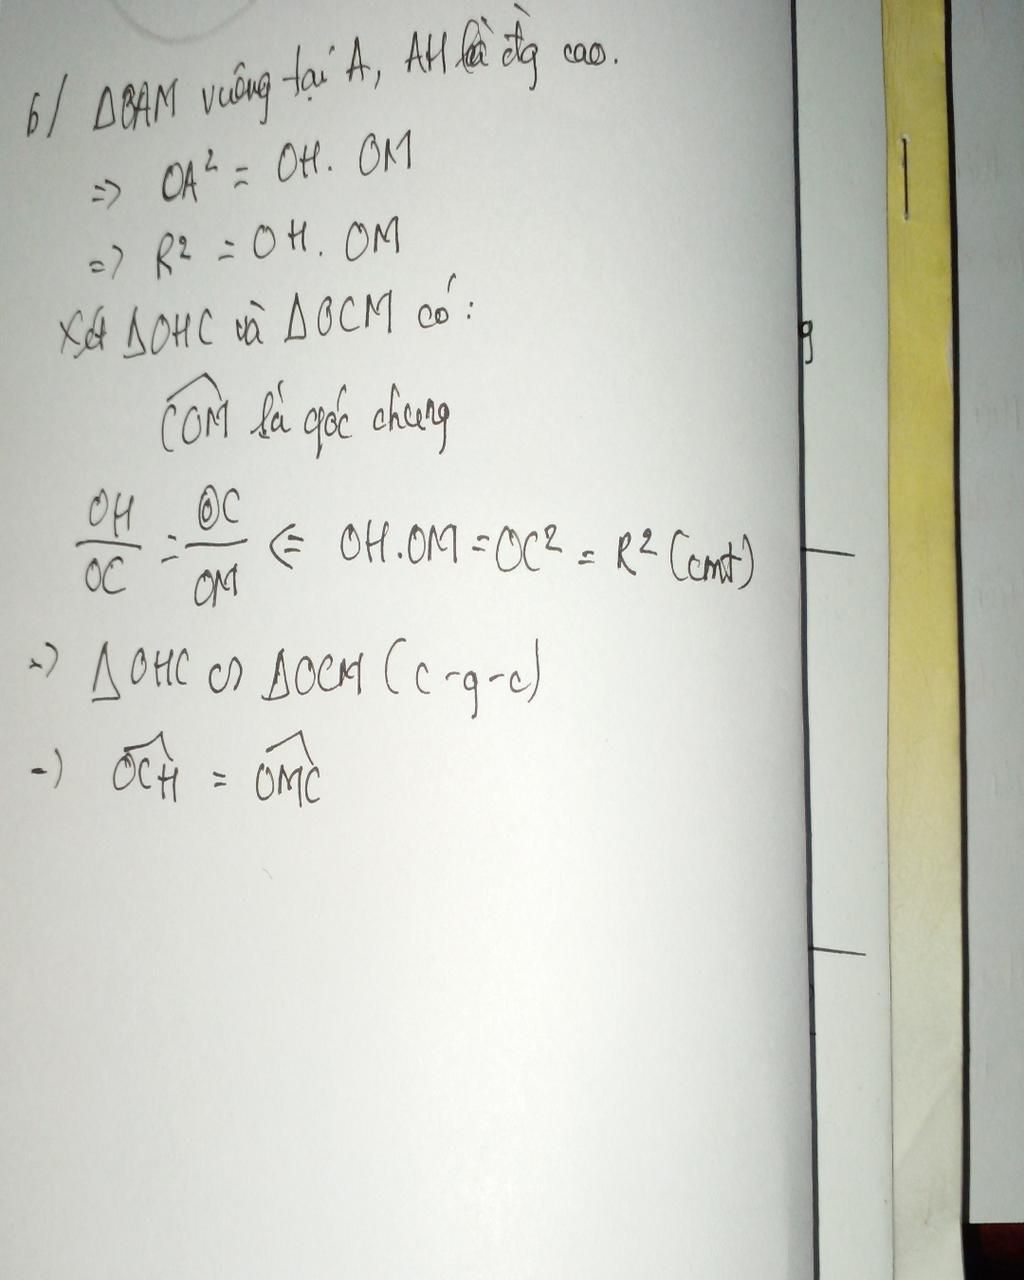 b/ ΔOAM vuông tại A, AH là đg cao.
=> OA² = OH. OM
=> R² = OH. OM
Xét ΔOHC và ΔOCM có:
\widehat{COM} là góc chung
OH/OC = OC/OM ⇐ OH.OM = OC² = R² (cmt)
=> ΔOHC ∽ ΔOCM (c-g-c)
=> \widehat{OCH} = \widehat{OMC}
g